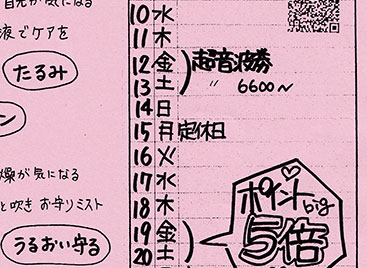 首元が気になる
液でケアを
たるみ
ン
燥が気になる
と吹き お守りミスト
うるおい守る
10 水
11 木
12 金
13 土
超音波勝
〃 6600~
14 日
15 月 定休日
16 火
17 水
18 木
19 金
20 土
ポイント big
5倍